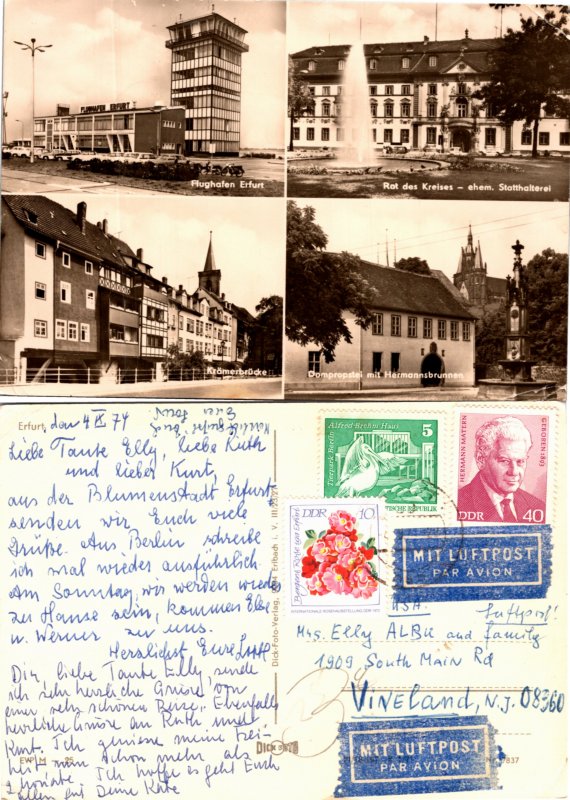 FLUGHAFEN ERFURT
Flughafen Erfurt
Rat des Kreises – ehem. Statthalterei
Krämerbrücke
Dompropstei mit Hermannsbrunnen
Erfurt, den 4 IX 74
Liebe Tante Elly, liebe Ruth
und lieber Kurt,
aus der Blumenstadt Erfurt
senden wir Euch viele
Grüße. Aus Berlin schreibe
ich mal wieder ausführlich.
Am Sonntag, wir werden wieder
zu Hause sein, kommen Else
u. Werner zu uns.
Herzlichst Eure Lotte
Dir, liebe Tante Elly, sende
ich sehr herzliche Grüße von
einer sehr schönen Reise. Ebenfalls
herzliche Grüsse an Ruth und
Kurt. Ich geniese meine Frei-
heit nun schon mehr als
2 Monate. Ich hoffe es geht Euch
allen gut Deine Käte
Dick-Foto-Verlag, Erlbach i. V. III/23/27
Alfred-Brehm Haus
5
Tierpark Berlin
HERMANN MATERN
GEBOREN 1893
DDR 40
DDR 10
INTERNATIONALE ROSENAUSSTELLUNG DDR 1972
MIT LUFTPOST
PAR AVION
USA.
Luftpost!
Mrs. Elly ALBU and family
1909 South Main Rd
VINELAND, N.J. 08360
MIT LUFTPOST
PAR AVION